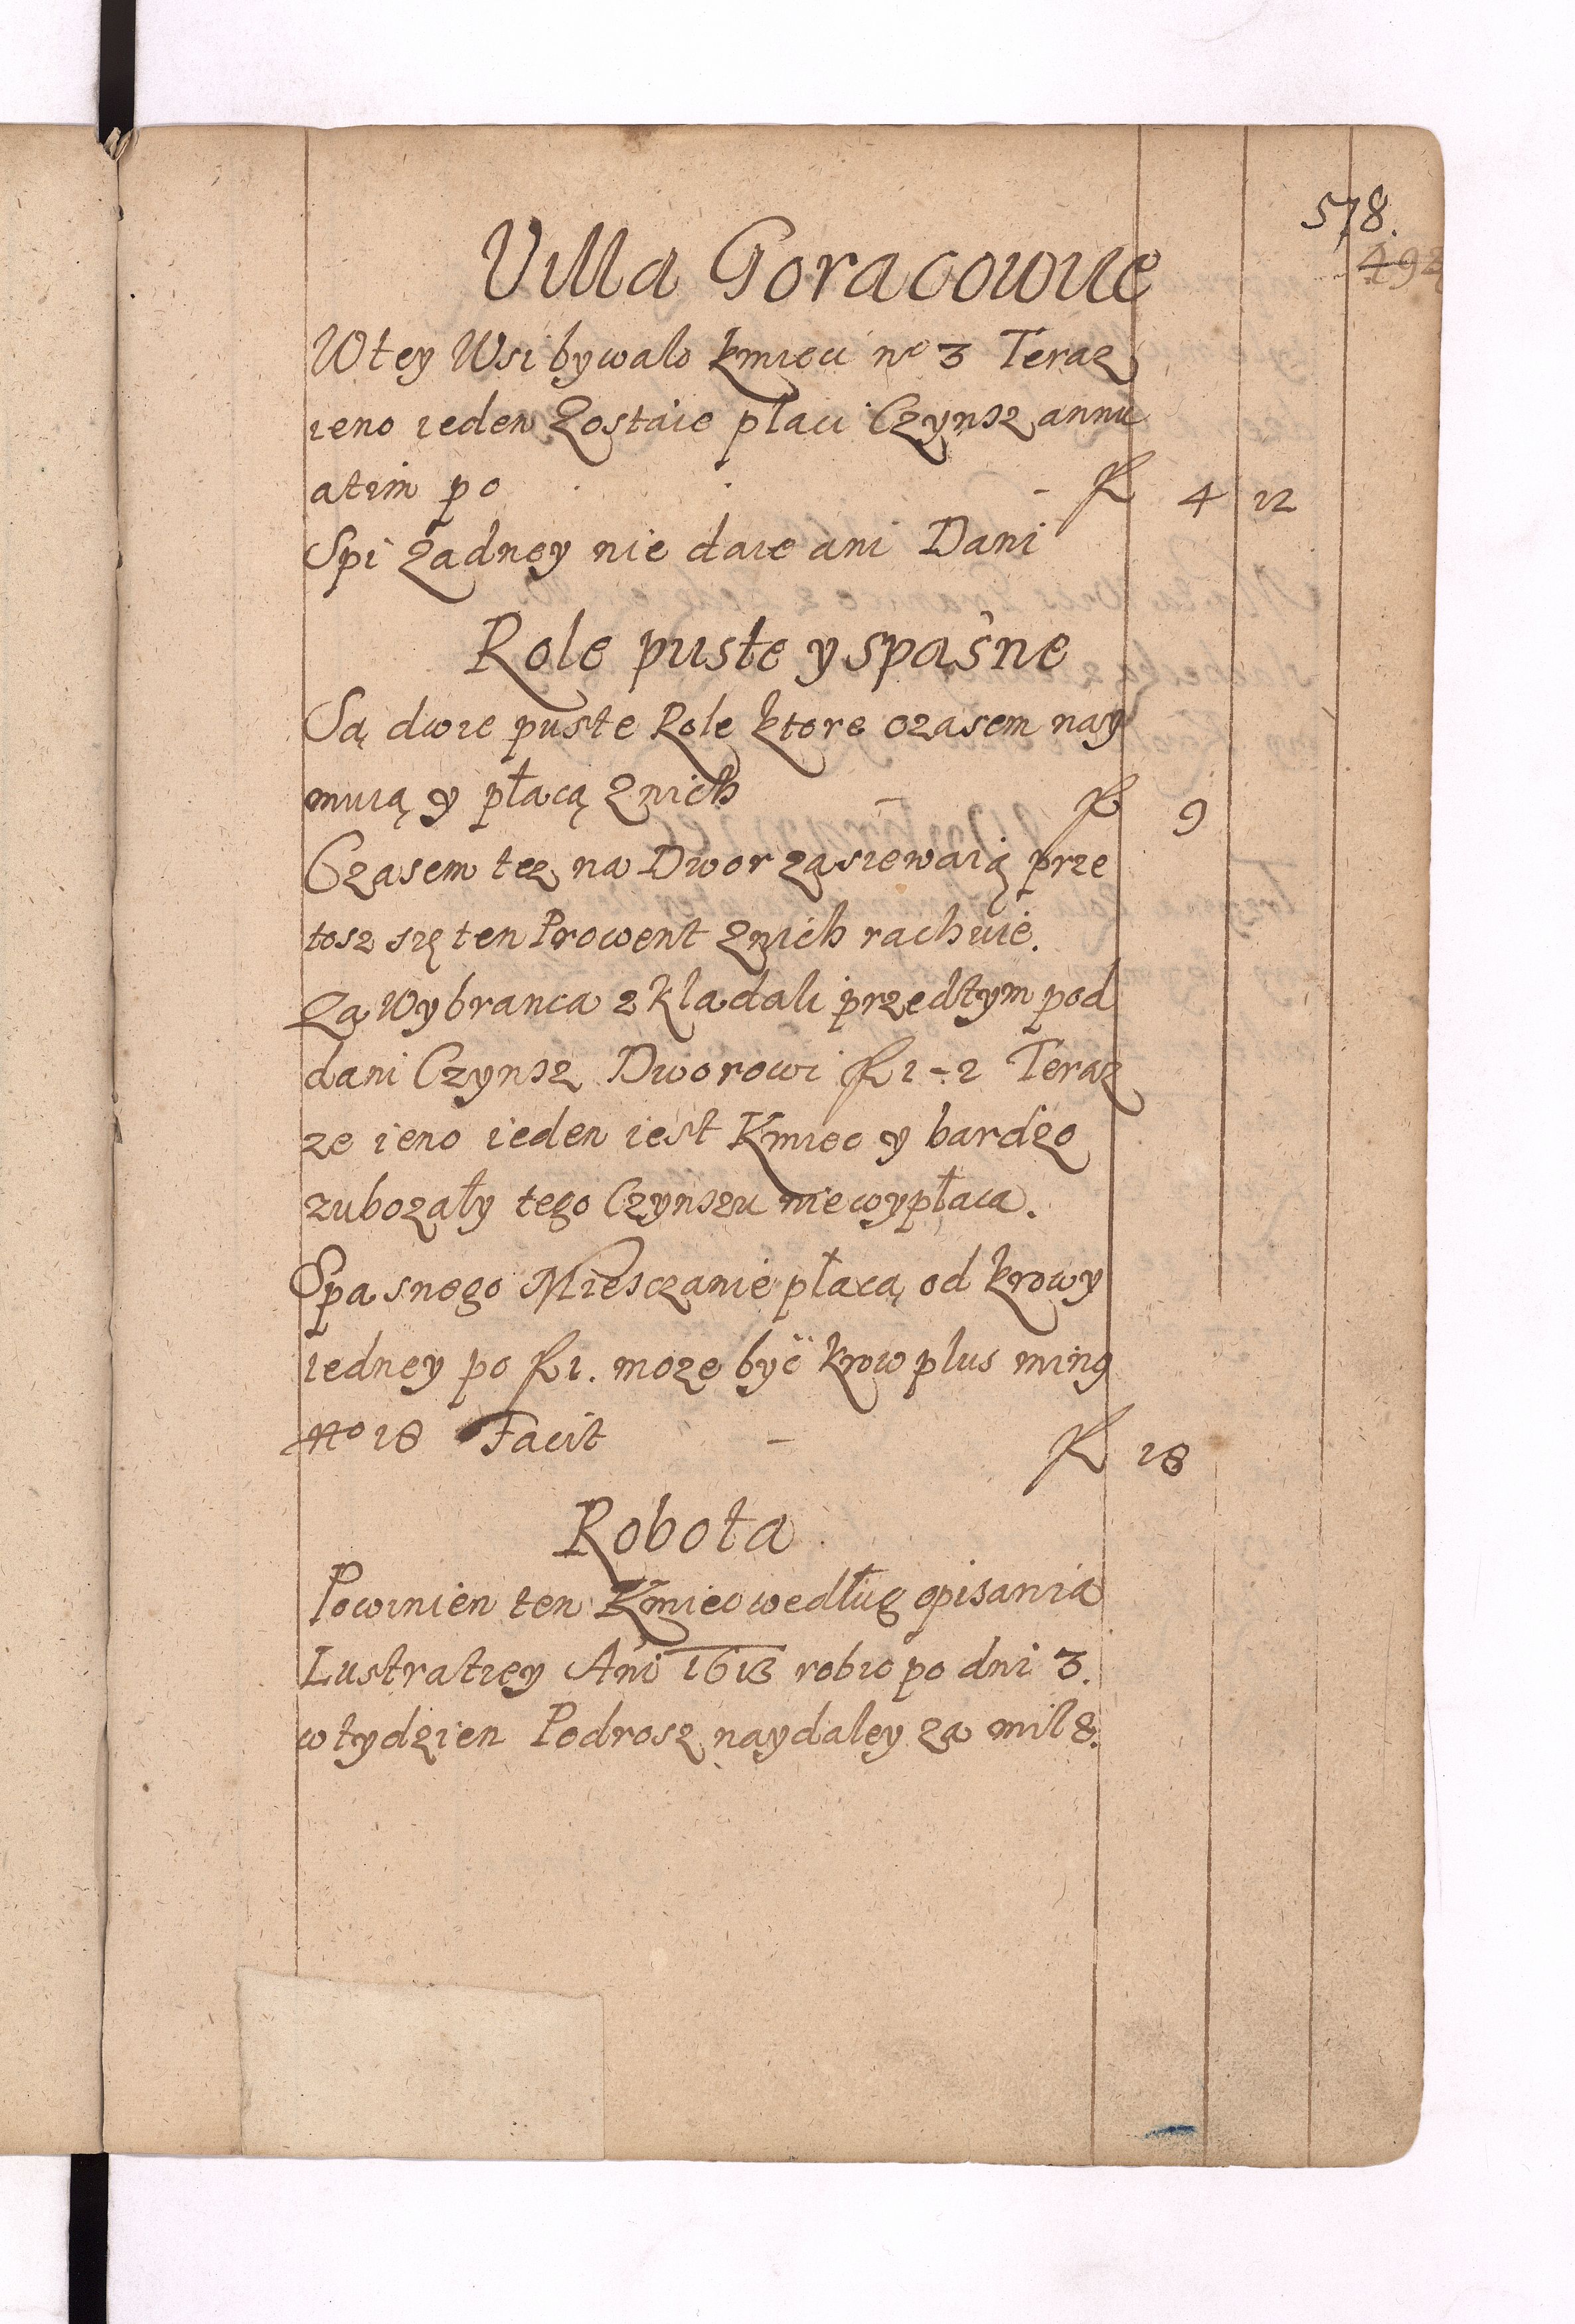 578.
492
Villa Goracowne
W tey Wsi bywalo kmieci no 3 Teraz
ieno ieden zostaie płaci Czynsz annu
atim po - fl 4 12
Spi żadney nie daie ani Dani
Role puste y spaśne
Są dwie puste Role ktore czasem nay
muią y płacą znich - fl 9
Czasem tez na Dwor zasiewaią prze
tosz się ten Prowent znich rachuie.
Za Wybranca zkladali przedtym pod
dani Czynsz Dworowi fl 1 - 2 Teraz
ze ieno ieden iest Kmiec y bardzo
zubozały tego Czynszu niewypłaca.
Spasnego Miesczanie płacą od krowy
iedney po fl 1. moze być krow plus ming
no 18 Facit - fl 18
Robota
Powinien ten Kmiec według opisania
Lustratiey Ani 1613 robic po dni 3.
w tydzien Podrosz naydaley za mil 8.